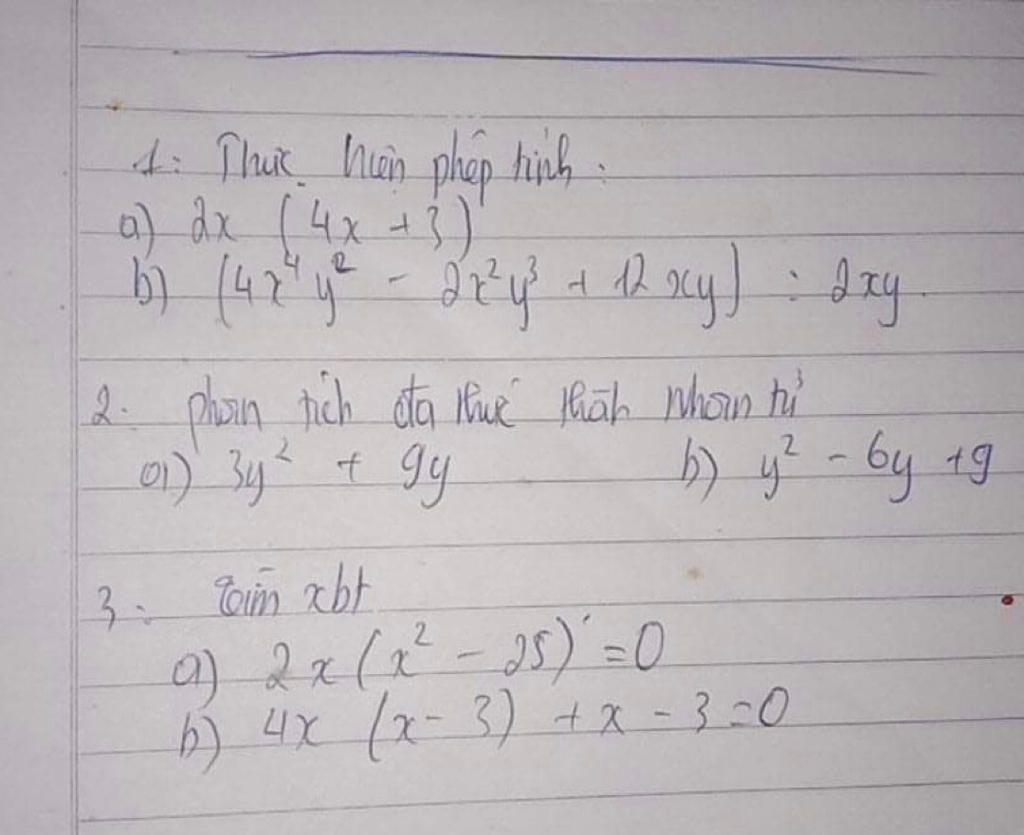 1: Thực hiện phép tính:
a) 2x (4x + 3)
b) (4x⁴y² - 2x²y³ + 12xy) : 2xy.
2. phân tích đa thức thành nhân tử
a) 3y² + 9y b) y² - 6y + 9
3. Tìm x bt
a) 2x(x² - 25) = 0
b) 4x (x - 3) + x - 3 = 0